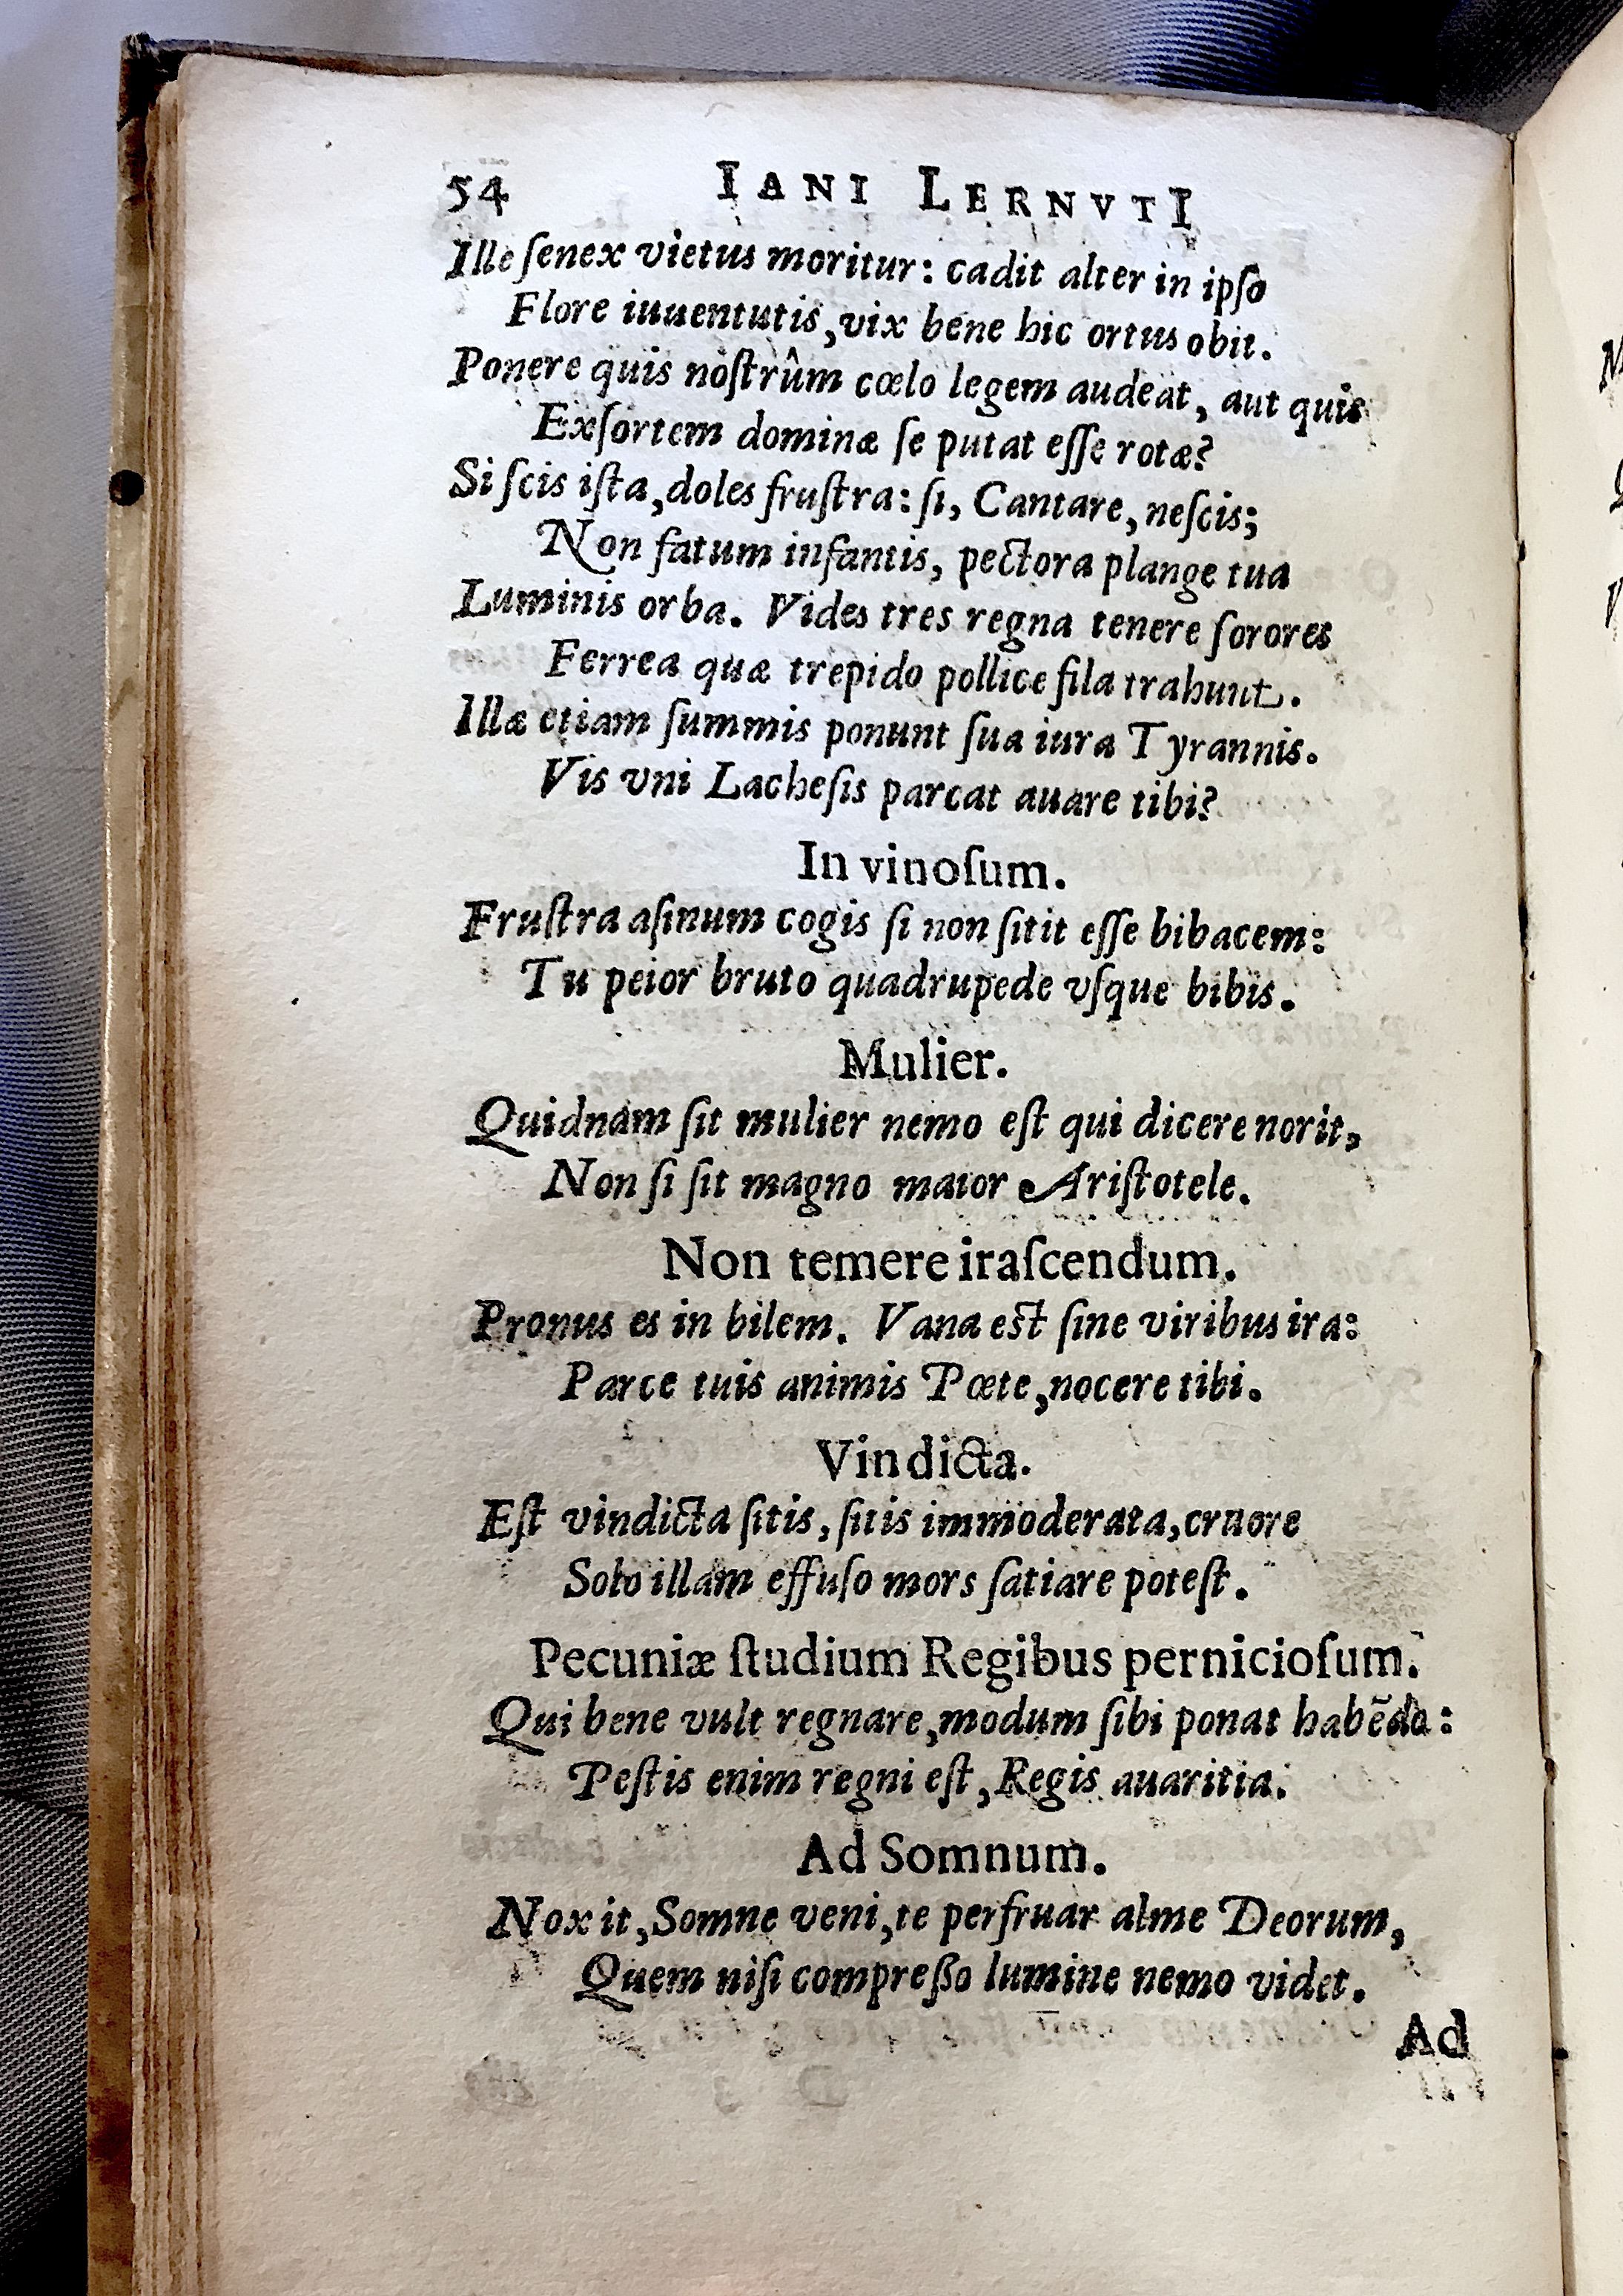 54 IANI LERNVTI
Ille ſenex vietus moritur: cadit alter in ipſo
Flore iuuentutis, vix bene hic ortus obit.
Ponere quis noſtrûm cœlo legem audeat, aut quis
Exſortem dominæ ſe putat eſſe rotæ?
Si ſcis iſta, doles fruſtra: ſi, Cantare, neſcis;
Non fatum infantis, pectora plange tua
Luminis orba. Vides tres regna tenere ſorores
Ferrea quæ trepido pollice fila trahunt.
Illæ etiam ſummis ponunt ſua iura Tyrannis.
Vis vni Lacheſis parcat auare tibi?
In vinoſum.
Fruſtra aſinum cogis ſi non ſitit eſſe bibacem:
Tu peior bruto quadrupede vſque bibis.
Mulier.
Quidnam ſit mulier nemo eſt qui dicere norit,
Non ſi ſit magno maior Ariſtotele.
Non temere iraſcendum.
Pronus es in bilem. Vana eſt ſine viribus ira:
Parce tuis animis Pœte, nocere tibi.
Vindicta.
Eſt vindicta ſitis, ſitis immoderata, cruore
Solo illam effuſo mors ſatiare poteſt.
Pecuniæ ſtudium Regibus pernicioſum.
Qui bene vult regnare, modum ſibi ponat habẽdo:
Peſtis enim regni eſt, Regis auaritia.
Ad Somnum.
Nox it, Somne veni, te perfruar alme Deorum,
Quem niſi compreßo lumine nemo videt.
Ad